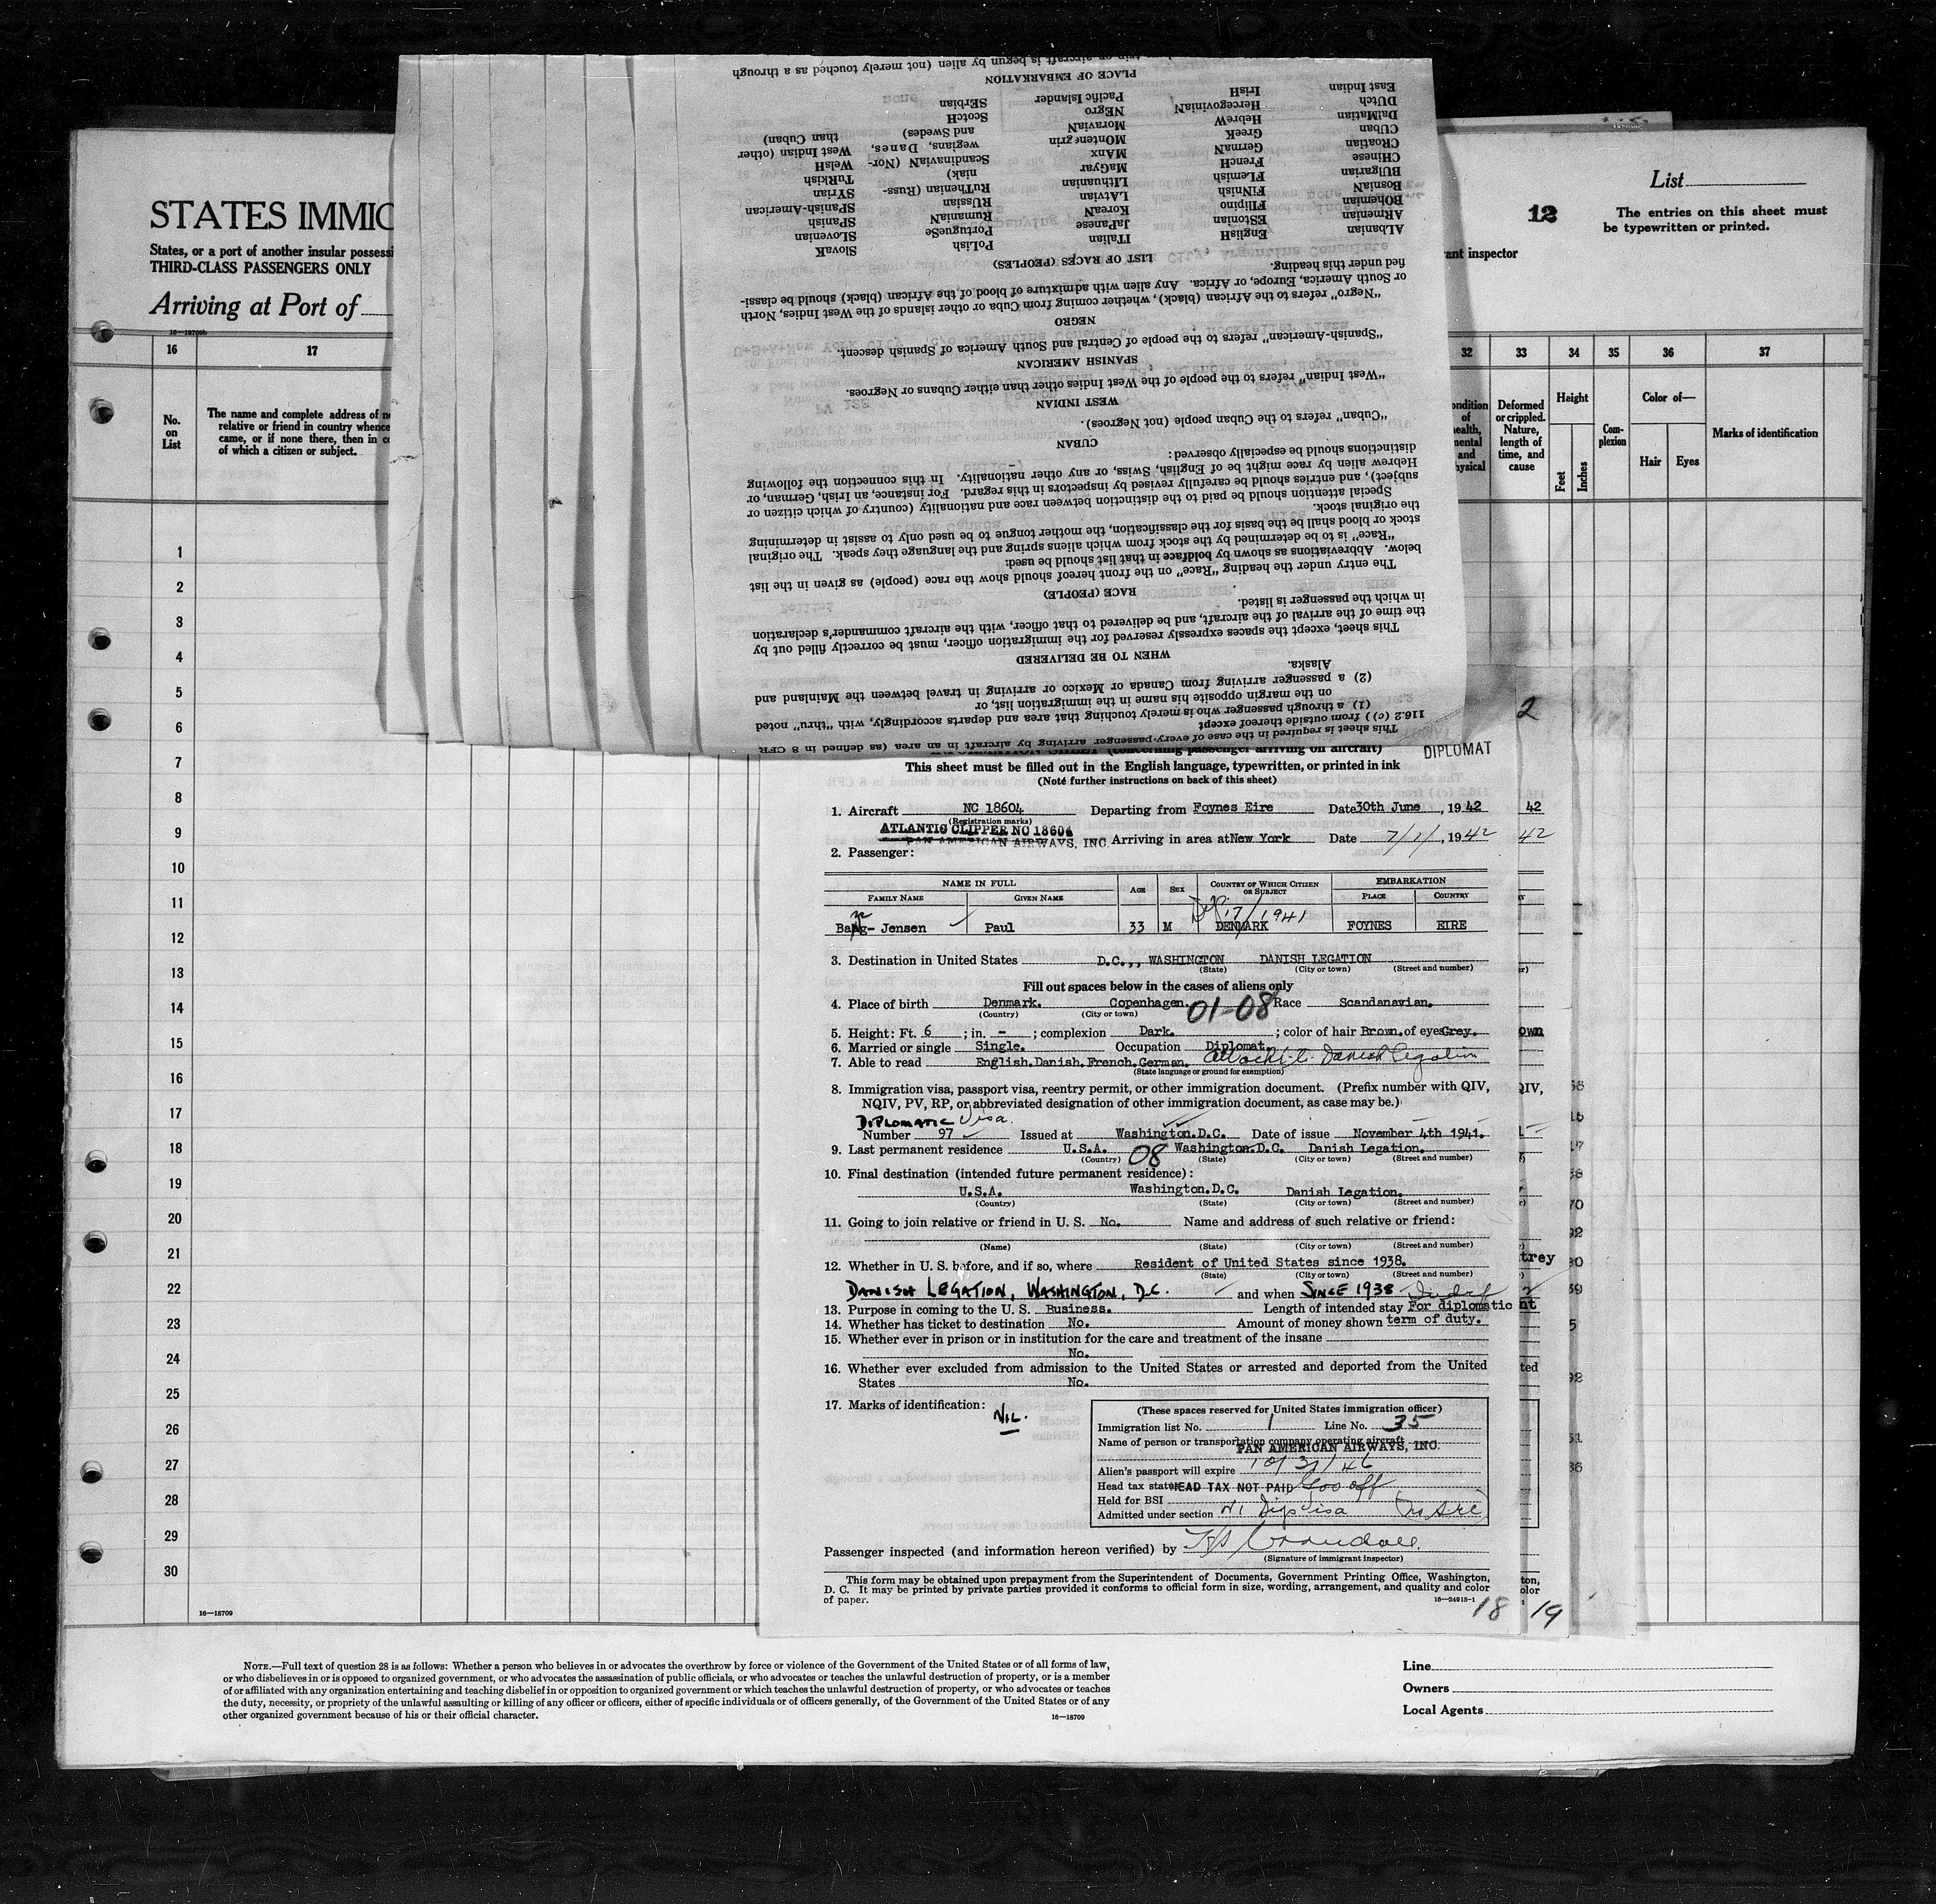 STATES IMMIG
States, or a port of another insular possessi
THIRD-CLASS PASSENGERS ONLY
Arriving at Port of
16—18709b
16
17
No.
on
List
The name and complete address of
relative or friend in country whence
came, or if none there, then in
of which a citizen or subject.
1
2
3
4
5
6
7
8
9
10
11
12
13
14
15
16
17
18
19
20
21
22
23
24
25
26
27
28
29
30
16—18709
This sheet is required in the case of every passenger arriving by aircraft in an area (as defined in 8 CFR
116.2 (c)) from outside thereof except
(1) a through passenger who is merely touching that area and departs accordingly, with "thru" noted
on the margin opposite his name in the immigration list, or
(2) a passenger arriving from Canada or Mexico or arriving in travel between the Mainland and
Alaska.
WHEN TO BE DELIVERED
This sheet, except the spaces expressly reserved for the immigration officer, must be correctly filled out by
the time of the arrival of the aircraft, and be delivered to that officer, with the aircraft commander's declaration
in which the passenger is listed.
RACE (PEOPLE)
The entry under the heading "Race" on the front hereof should show the race (people) as given in the list
below. Abbreviations as shown by boldface in that list should be used:
"Race" is to be determined by the stock from which aliens spring and the language they speak. The original
stock or blood shall be the basis for the classification, the mother tongue to be used only to assist in determining
the original stock.
Special attention should be paid to the distinction between race and nationality (country of which citizen or
subject), and entries should be carefully revised by inspectors in this regard. For instance, an Irish, German, or
Hebrew alien by race might be of English, Swiss, or any other nationality. In this connection the following
distinctions should be especially observed:
CUBAN
"Cuban" refers to the Cuban people (not Negroes).
WEST INDIAN
"West Indian" refers to the people of the West Indies other than either Cubans or Negroes.
SPANISH AMERICAN
"Spanish-American" refers to the people of Central and South America of Spanish descent.
NEGRO
"Negro" refers to the African (black), whether coming from Cuba or other islands of the West Indies, North
or South America, Europe, or Africa. Any alien with admixture of blood of the African (black) should be classi-
fied under this heading.
LIST OF RACES (PEOPLES)
ALbanian
ARmenian
BOhemian
BosniaN
BUlgarian
CHinese
CROatian
CUbaN
DalMatian
DUtcH
East Indian
EnglisH
EStonian
FIlipino
FiNnisH
FLemish
FrencH
GermaN
GreeK
HebreW
HercegovinиaN
IrisH
ITalian
JaPanese
KoreaN
LAtvian
LIthuanian
MaGyar
MAnx
MOntenegrin
MoraviaN
NEgro
Pacific Islander
PoLisH
PortuguеSe
RumaniaN
RUssian
RuThenian (Russ-
niak)
ScandinaviaN (Nor-
wegians, Danes,
and Swedes)
ScotcH
SErbian
SlovaK
SLovenian
SPanish
SPanish-American
SYrian
TuRkish
WelsH
West Indian (other
than Cuban)
PLACE OF EMBARKATION
is begun by alien (not merely touched as a through
DIPLOMAT
(concerning passenger arriving on aircraft)
This sheet must be filled out in the English language, typewritten, or printed in ink
(Note further instructions on back of this sheet)
1. Aircraft NC 18604 Departing from Foynes Eire Date 30th June, 1942
(Registration marks)
ATLANTIC CLIPPER NC 18604
PAN AMERICAN AIRWAYS, INC. Arriving in area at New York Date 7/1/, 1942
2. Passenger:
NAME IN FULL
AGE
SEX
COUNTRY OF WHICH CITIZEN OR SUBJECT
EMBARKATION
FAMILY NAME
GIVEN NAME
PLACE
COUNTRY
17/1941
Bang- Jensen Paul 33 M DENMARK FOYNES EIRE
3. Destination in United States D.C.,, WASHINGTON DANISH LEGATION
(State) (City or town) (Street and number)
Fill out spaces below in the cases of aliens only
4. Place of birth Denmark. Copenhagen. 01-08 Race Scandanavian.
(Country) (City or town)
5. Height: Ft. 6 ; in. - ; complexion Dark. ; color of hair Brown. of eyes Grey.
6. Married or single Single. Occupation Diplomat.
7. Able to read English.Danish.French.German. Attaché to Danish Legation
(State language or ground for exemption)
8. Immigration visa, passport visa, reentry permit, or other immigration document. (Prefix number with QIV,
NQIV, PV, RP, or abbreviated designation of other immigration document, as case may be.)
DIPLOMATIC Visa.
Number 97 Issued at Washington.D.C. Date of issue November 4th 1941.
9. Last permanent residence U.S.A. 08 Washington.D.C. Danish Legation.
(Country) (State) (City or town) (Street and number)
10. Final destination (intended future permanent residence):
U.S.A. Washington.D.C. Danish Legation.
(Country) (State) (City or town) (Street and number)
11. Going to join relative or friend in U. S. No. Name and address of such relative or friend:
(Name) (State) (City or town) (Street and number)
12. Whether in U. S. before, and if so, where Resident of United States since 1938.
(State) (City or town) (Street and number)
DANISH LEGATION, WASHINGTON, D.C. and when SINCE 1938
13. Purpose in coming to the U. S. Business. Length of intended stay For diplomatic
14. Whether has ticket to destination No. Amount of money shown term of duty.
15. Whether ever in prison or in institution for the care and treatment of the insane
No.
16. Whether ever excluded from admission to the United States or arrested and deported from the United
States No.
17. Marks of identification:
NIL.
(These spaces reserved for United States immigration officer)
Immigration list No. 1 Line No. 35
Name of person or transportation company operating aircraft
PAN AMERICAN AIRWAYS, INC.
Alien's passport will expire 10/31/46
Head tax status HEAD TAX NOT PAID
Held for BSI
Admitted under section
Passenger inspected (and information hereon verified) by
(Signature of immigrant inspector)
This form may be obtained upon prepayment from the Superintendent of Documents, Government Printing Office, Washington,
D. C. It may be printed by private parties provided it conforms to official form in size, wording, arrangement, and quality and color
of paper.
16—24915-1
18
19
2
42
42
12
List
The entries on this sheet must
be typewritten or printed.
ant inspector
32
33
34
35
36
37
ondition
of
health,
mental
and
physical
Deformed
or crippled.
Nature,
length of
time, and
cause
Height
Feet
Inches
Com-
plexion
Color of—
Hair
Eyes
Marks of identification
NOTE.—Full text of question 28 is as follows: Whether a person who believes in or advocates the overthrow by force or violence of the Government of the United States or of all forms of law,
or who disbelieves in or is opposed to organized government, or who advocates the assassination of public officials, or who advocates or teaches the unlawful destruction of property, or is a member
of or affiliated with any organization entertaining and teaching disbelief in or opposition to organized government or which teaches the unlawful destruction of property, or who advocates or teaches
the duty, necessity, or propriety of the unlawful assaulting or killing of any officer or officers, either of specific individuals or of officers generally, of the Government of the United States or of any
other organized government because of his or their official character.
16—18709
Line
Owners
Local Agents